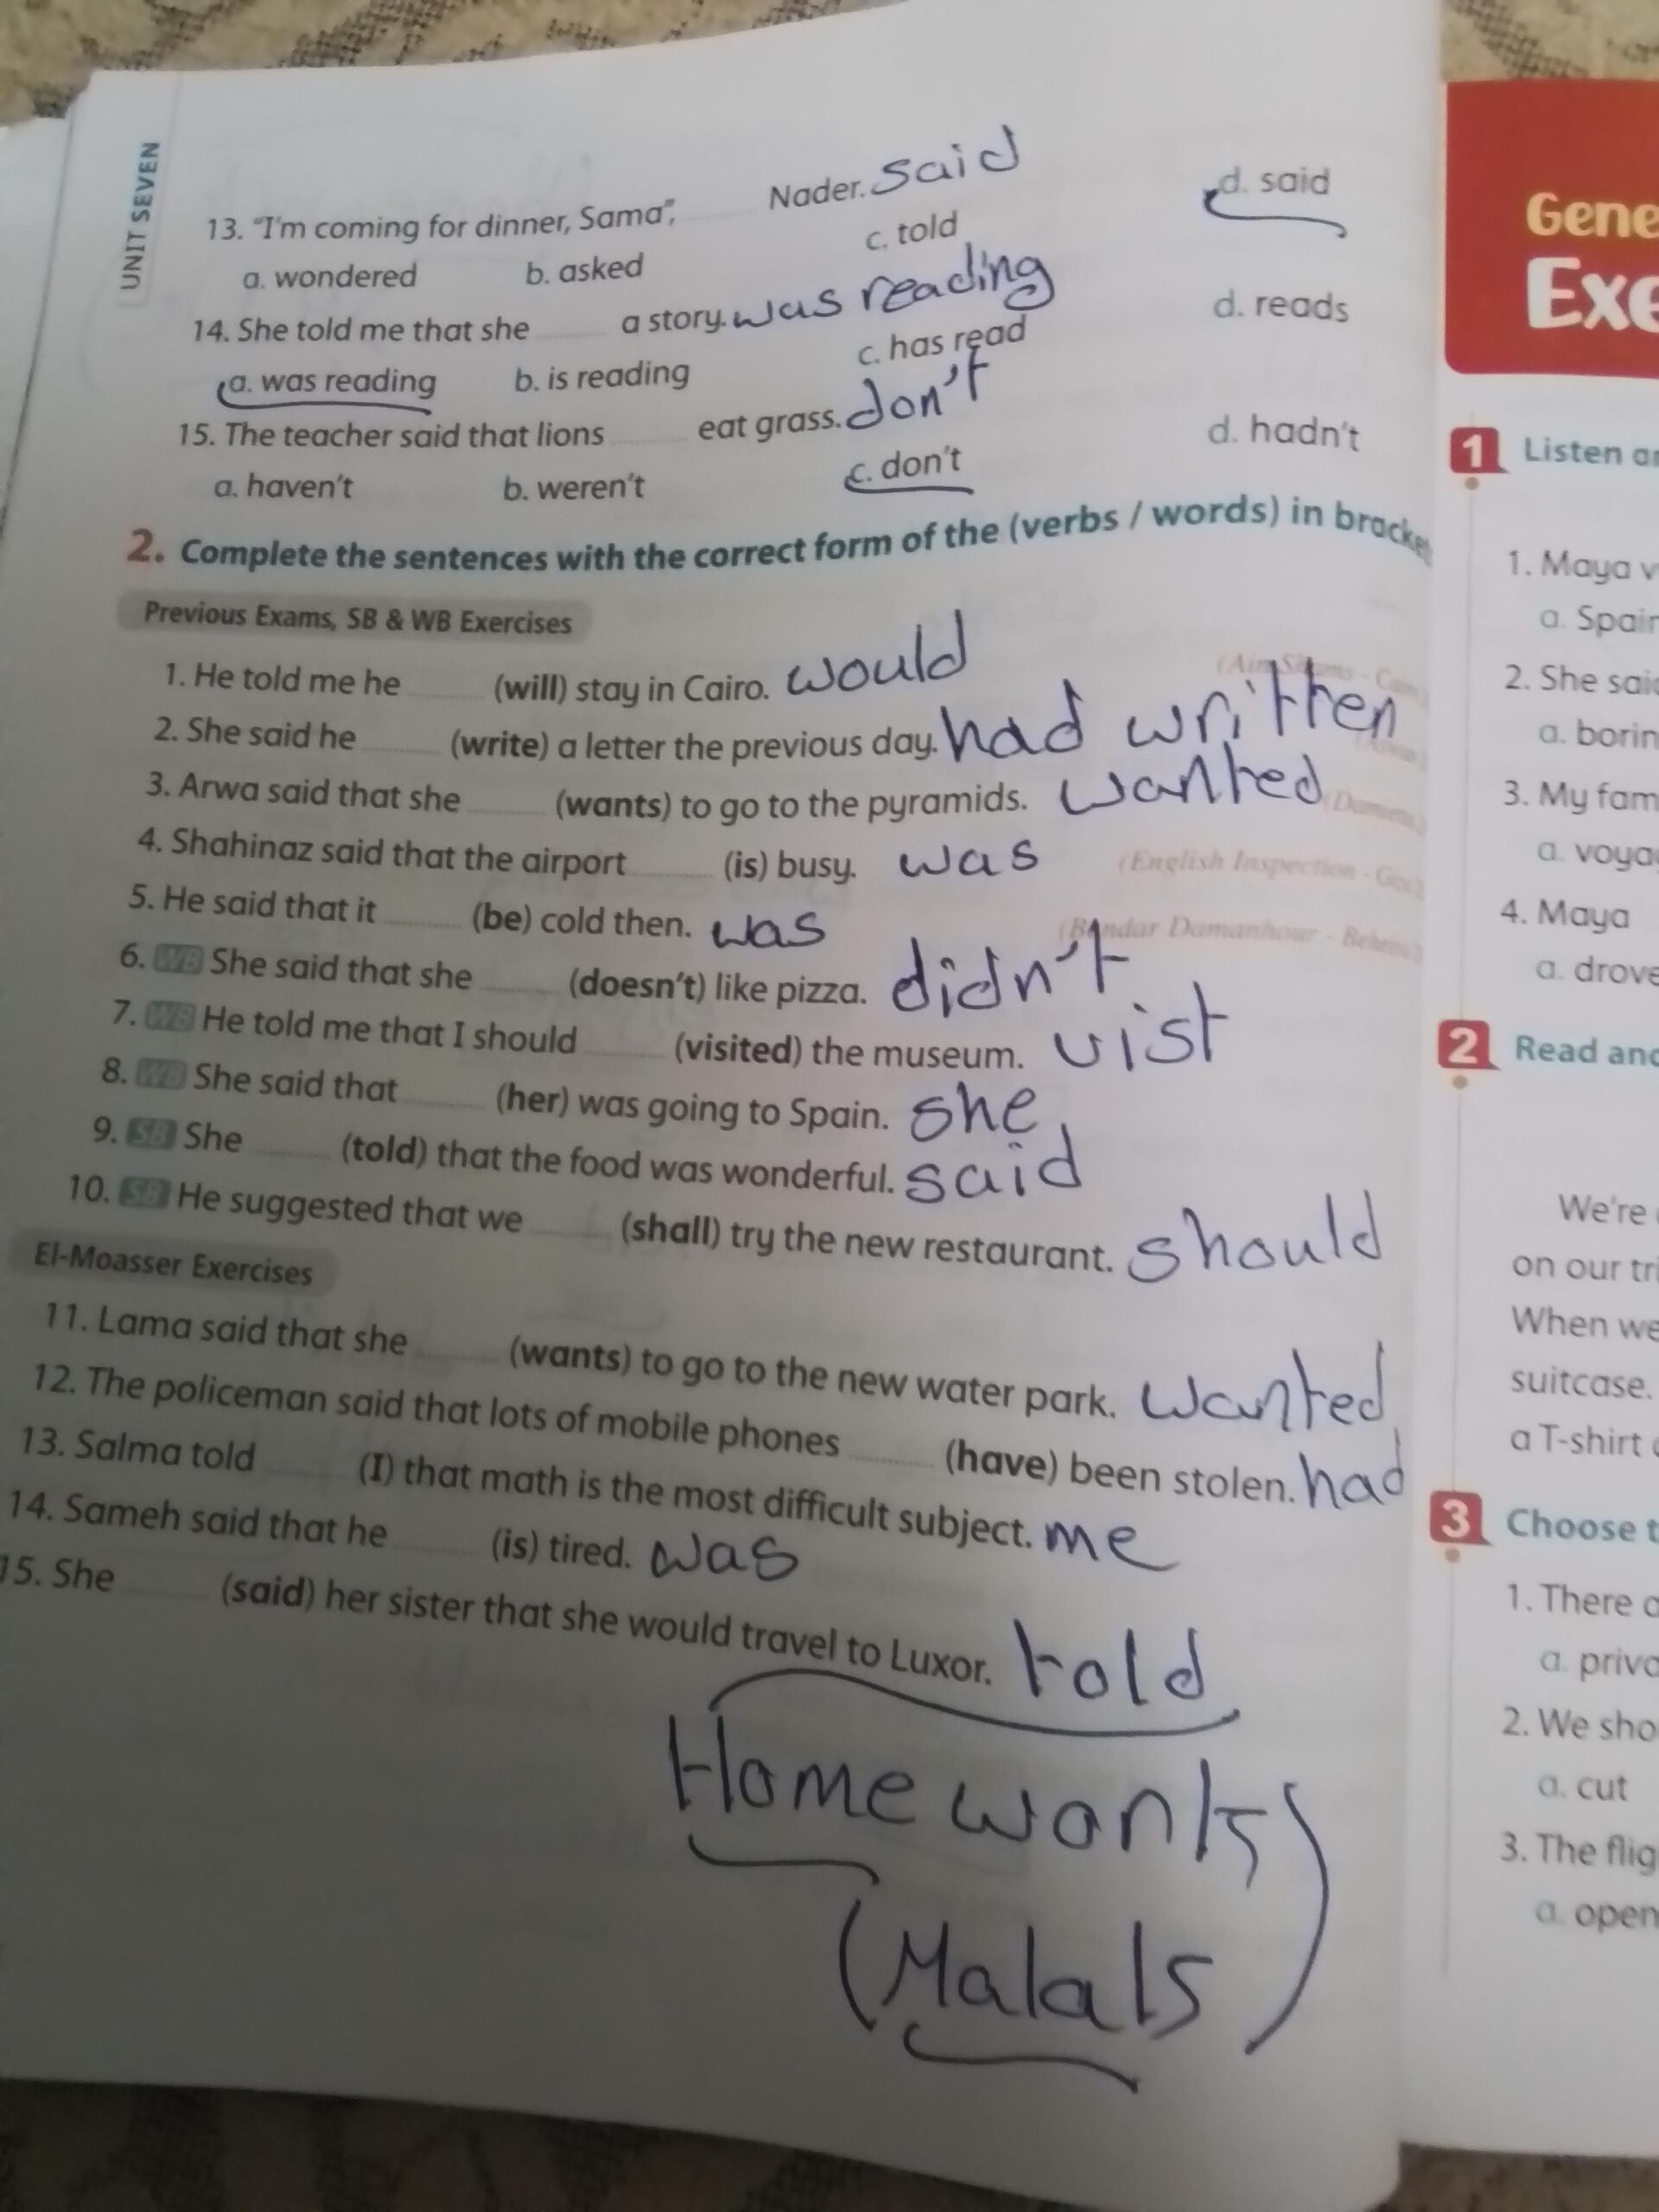 UNIT SEVEN
13. "I'm coming for dinner, Sama", ........ Nader. said
a. wondered b. asked c. told d. said
14. She told me that she ........ a story. was reading
a. was reading b. is reading c. has read d. reads
15. The teacher said that lions ........ eat grass. don't
a. haven't b. weren't c. don't d. hadn't
2. Complete the sentences with the correct form of the (verbs / words) in
Previous Exams, SB & WB Exercises
1. He told me he ........ (will) stay in Cairo. would
2. She said he ........ (write) a letter the previous day. had written
3. Arwa said that she ........ (wants) to go to the pyramids. wanted
4. Shahinaz said that the airport ........ (is) busy. was (English Inspection -
5. He said that it ........ (be) cold then. was (Bandar Damanhour -
6. WB She said that she ........ (doesn't) like pizza. didn't
7. WB He told me that I should ........ (visited) the museum. vist
8. WB She said that ........ (her) was going to Spain. she
9. SB She ........ (told) that the food was wonderful. said
10. SB He suggested that we ........ (shall) try the new restaurant. should
El-Moasser Exercises
11. Lama said that she ........ (wants) to go to the new water park. wanted
12. The policeman said that lots of mobile phones ........ (have) been stolen. had
13. Salma told ........ (I) that math is the most difficult subject. me
14. Sameh said that he ........ (is) tired. was
15. She ........ (said) her sister that she would travel to Luxor. told
Home
Gene
Exe
1 Listen
1. Maya
a. Spain
2. She said
a. borin
3. My fam
a. voya
4. Maya
a. drove
2 Read and
We're
on our tri
When we
suitcase.
a T-shirt
3 Choose t
1. There
a. priva
2. We sho
a. cut
3. The flig
a. open